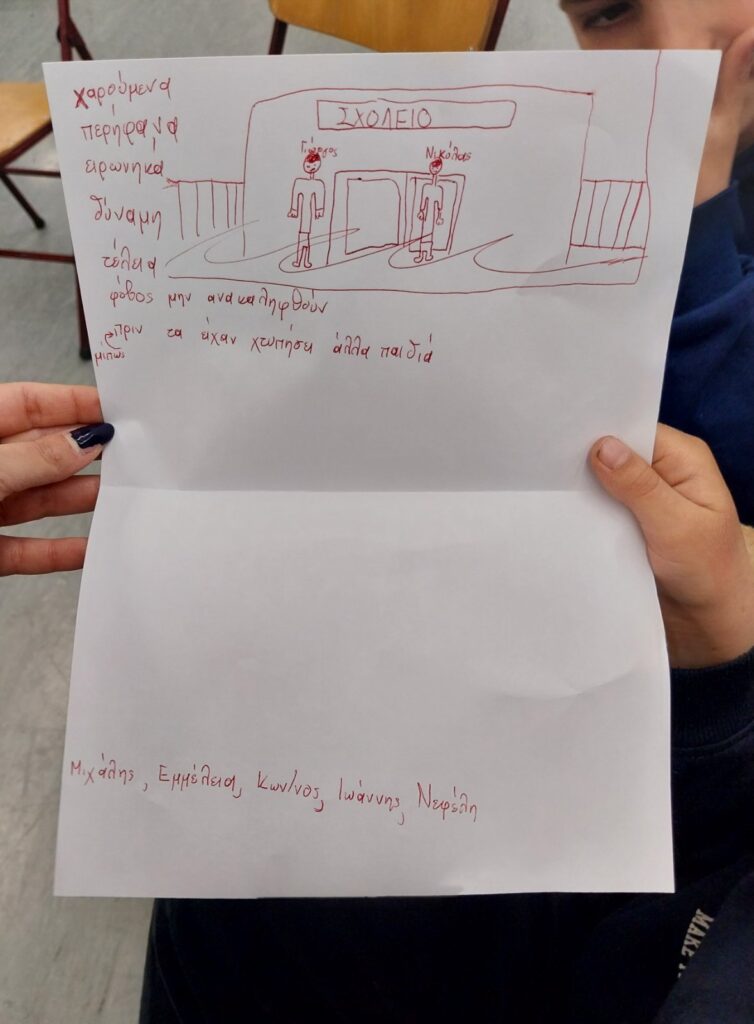 χαρούμενα
περήφανα
ειρωνηκά
δύναμη
τέλεια
φόβος μην ανακαληφθούν
μίπως πριν τα είχαν χτυπήσει άλλα παιδιά
ΣΧΟΛΕΙΟ
Γιώργος
Νικόλας
Μιχάλης, Εμμέλεια, Κων/νος, Ιωάννης, Νεφέλη
MAKE